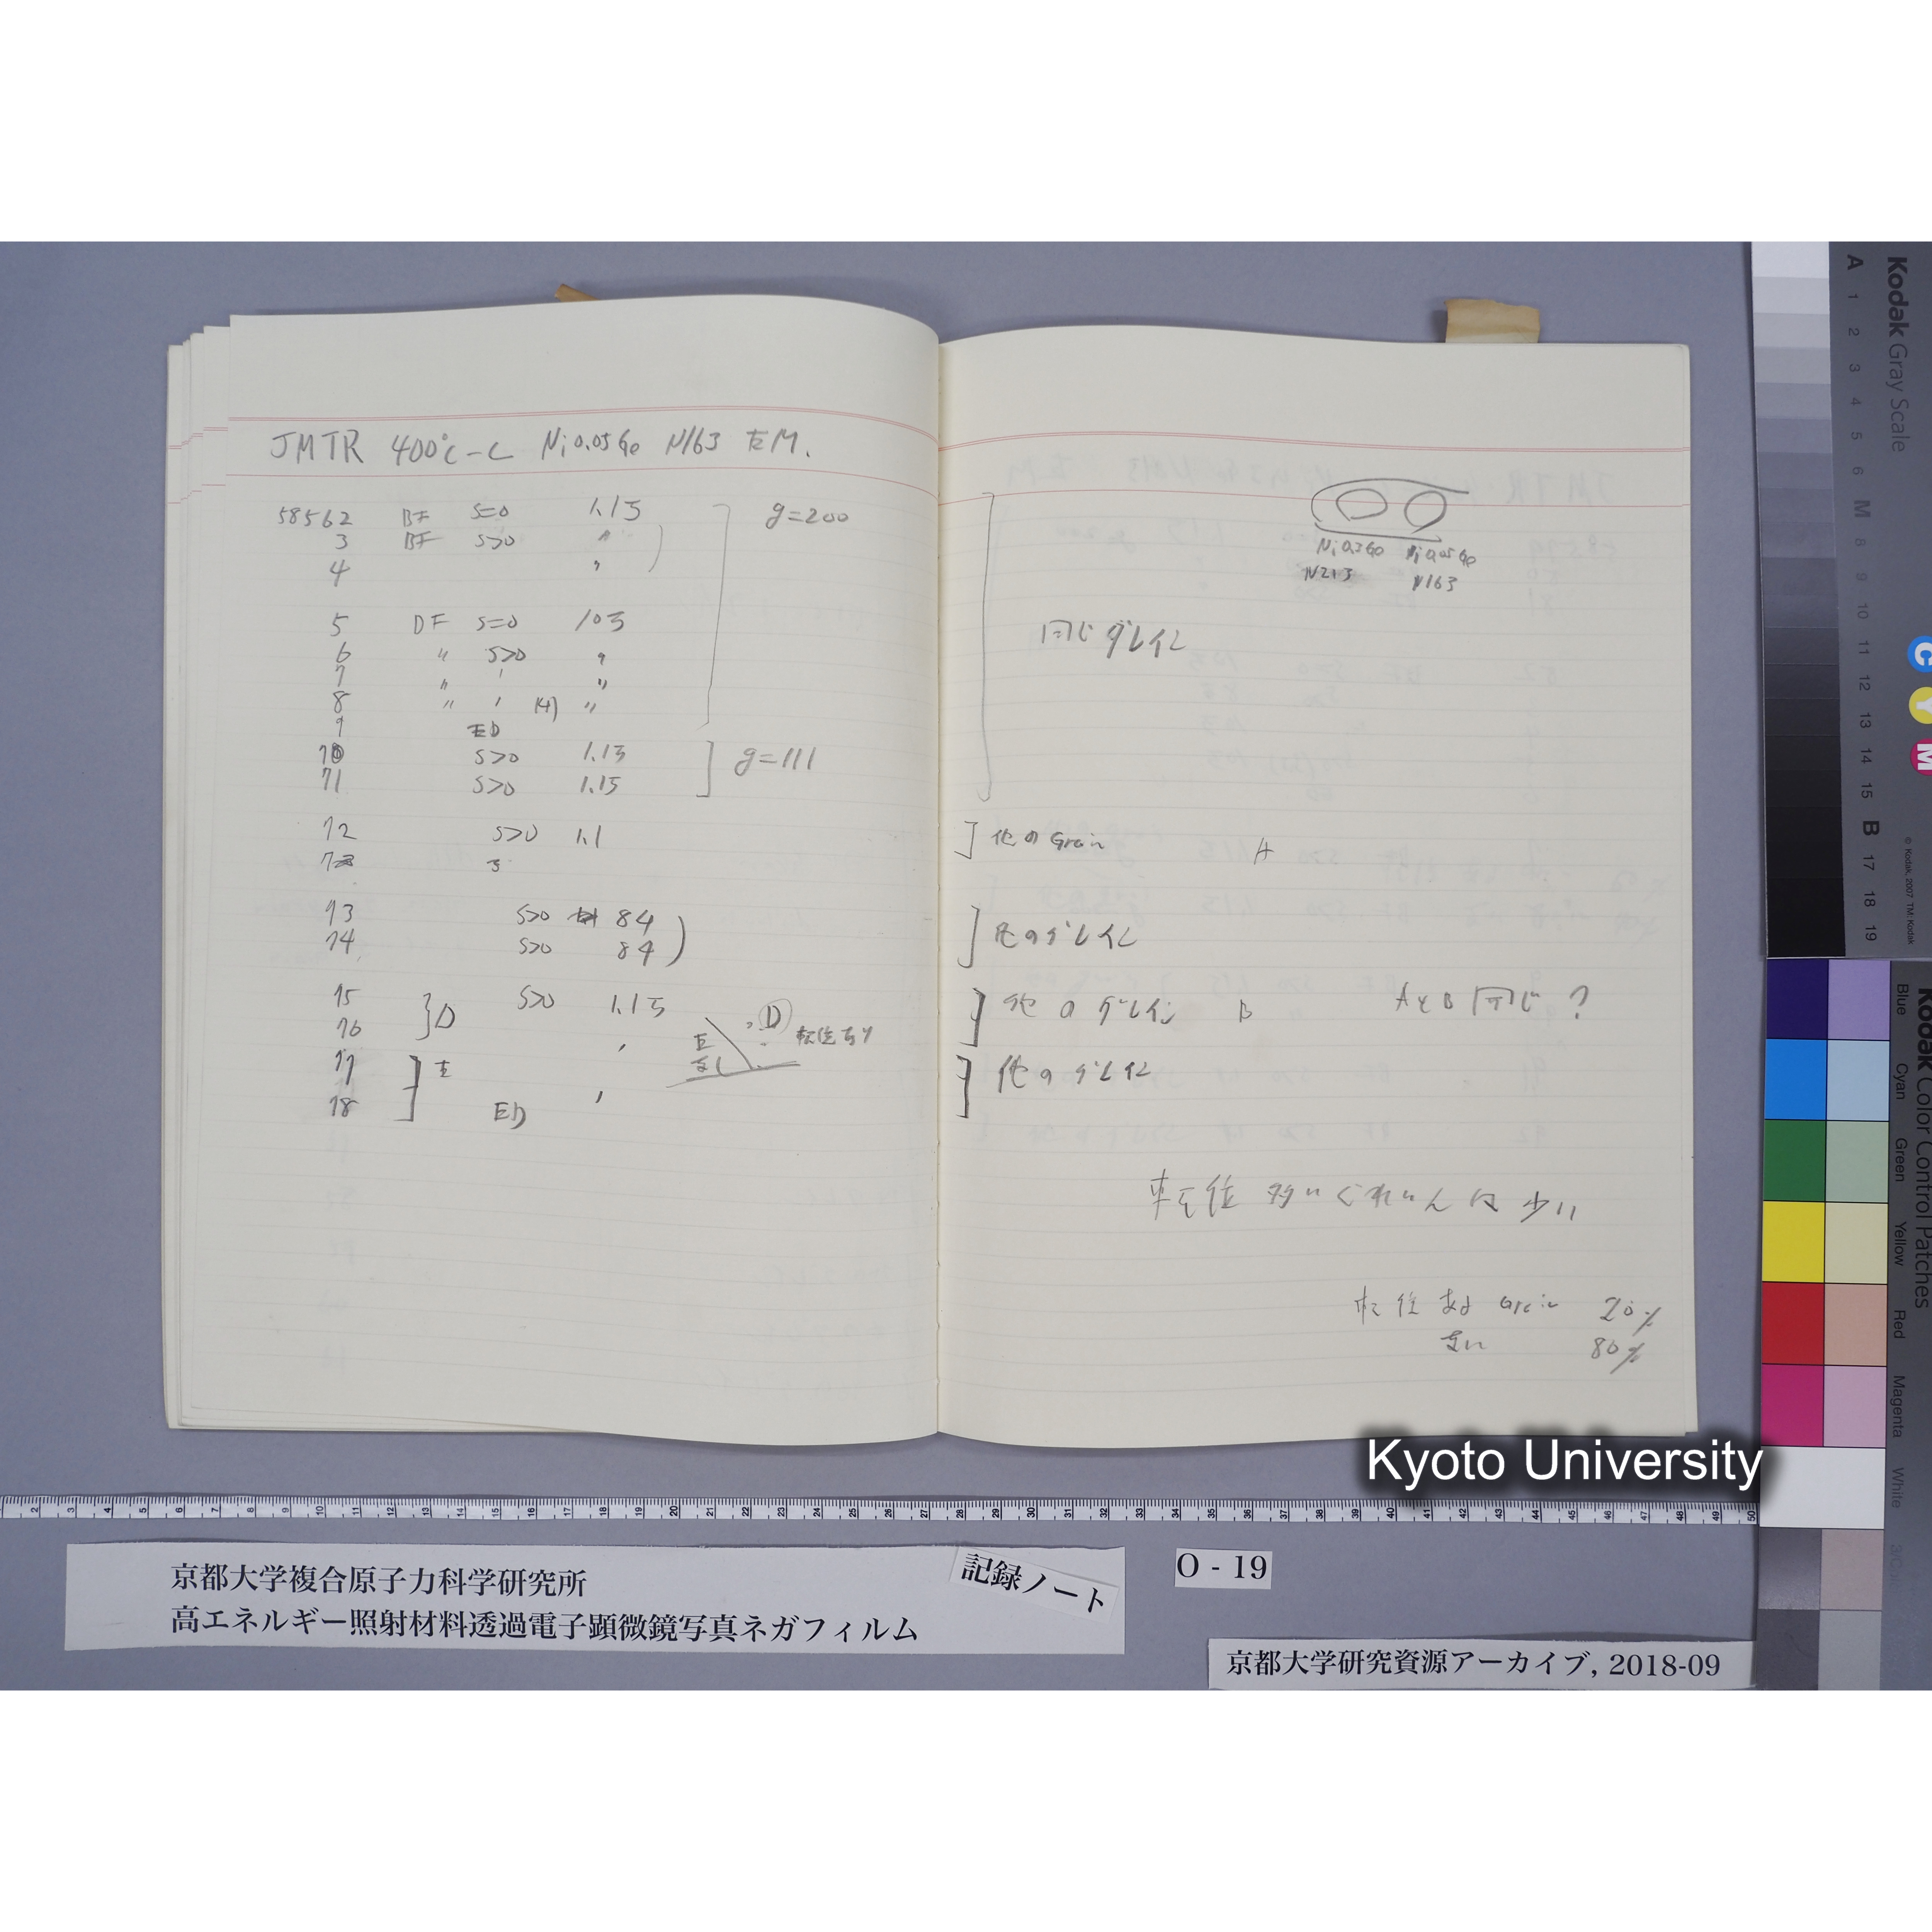 JMTR 400℃-C Ni0.05Ge N163 左M.
58562 BF S=0 1.15 g=200
3 BF S>0 〃
4 〃
5 DF S=0 105
6 〃 S>0 〃
7 〃 〃 〃
8 〃 〃 (4) 〃
9 ED
70 S>0 1.15 g=111
71 S>0 1.15
72 S>0 1.1
73 S>0 84
74 S>0 84
75 D S>0 1.15
76 〃
77 左 〃
78 ED
左 D 転位あり
なし
Ni0.3Ge Ni0.05Ge
N213 N163
同じグレイン
他のGrain A
他のグレイン
他のグレイン B AとB同じ?
他のグレイン
転位 多いぐれいんは 少い
転位ある Grain 20%
ない 80%
Kyoto University
京都大学複合原子力科学研究所
高エネルギー照射材料透過電子顕微鏡写真ネガフィルム
記録ノート
O - 19
京都大学研究資源アーカイブ, 2018-09
Kodak Gray Scale
A 1 2 3 4 5 6 M 8 9 10 11 12 13 14 15 B 17 18 19
© Kodak, 2007 TM: Kodak
C Y M
Kodak Color Control Patches
Blue Cyan Green Yellow Red Magenta White